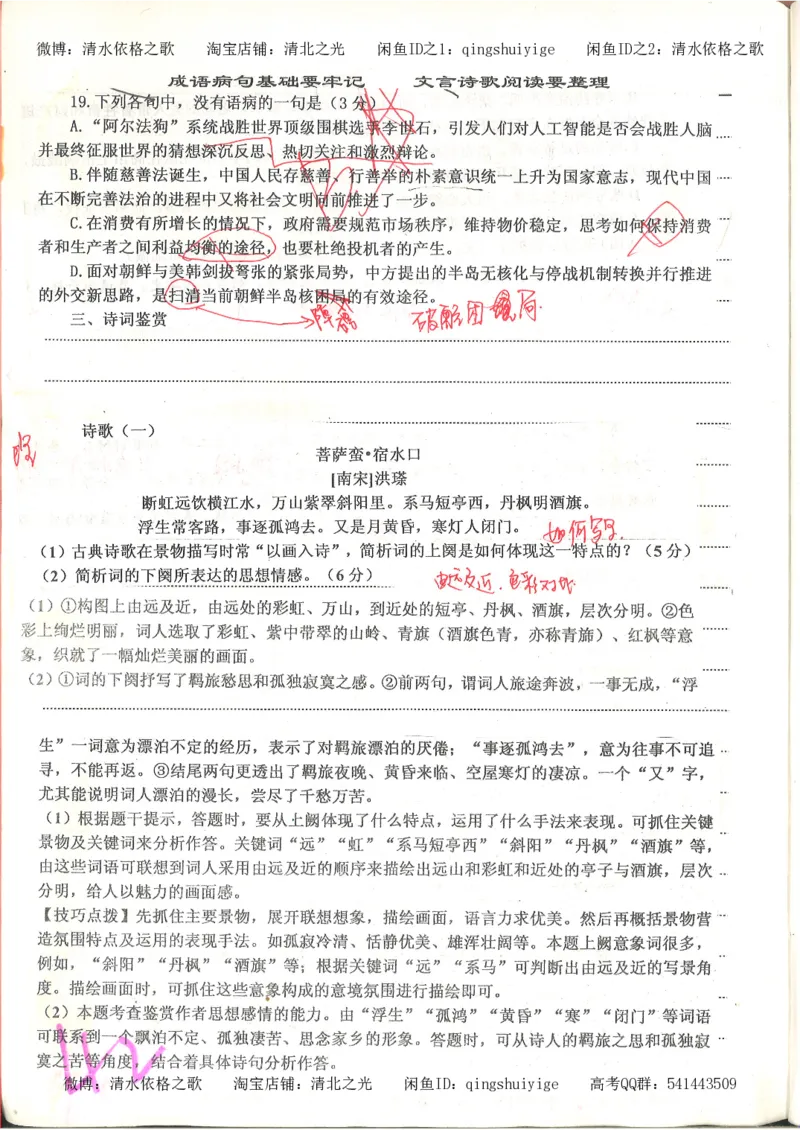 微博：清水依格之歌 淘宝店铺：清北之光 闲鱼ID之1：qingshuiyige 闲鱼ID之2：清水依格之歌
成语病句基础要牢记 文言诗歌阅读要整理
19.下列各句中，没有语病的一句是（3分）
A.“阿尔法狗”系统战胜世界顶级围棋选手李世石，引发人们对人工智能是否会战胜人脑
并最终征服世界的猜想深沉反思、热切关注和激烈辩论。
B.伴随慈善法诞生，中国人民存慈善、行善举的朴素意识统一上升为国家意志，现代中国
在不断完善法治的进程中又将社会文明向前推进了一步。
C.在消费有所增长的情况下，政府需要规范市场秩序，维持物价稳定，思考如何保持消费
者和生产者之间利益均衡的途径，也要杜绝投机者的产生。
D.面对朝鲜与美韩剑拔弩张的紧张局势，中方提出的半岛无核化与停战机制转换并行推进
的外交新思路，是扫清当前朝鲜半岛核困局的有效途径。
三、诗词鉴赏
诗歌（一）
菩萨蛮·宿水口
[南宋]洪瑹
断虹远饮横江水，万山紫翠斜阳里。系马短亭西，丹枫明酒旗。
浮生常客路，事逐孤鸿去。又是月黄昏，寒灯人闭门。
如何写
（1）古典诗歌在景物描写时常“以画入诗”，简析词的上阕是如何体现这一特点的？（5分）
（2）简析词的下阕所表达的思想情感。（6分）
由远及近．色彩对比
（1）①构图上由远及近，由远处的彩虹、万山，到近处的短亭、丹枫、酒旗，层次分明。②色
彩上绚烂明丽，词人选取了彩虹、紫中带翠的山岭、青旗（酒旗色青，亦称青旆）、红枫等意
象，织就了一幅灿烂美丽的画面。
（2）①词的下阕抒写了羁旅愁思和孤独寂寞之感。②前两句，谓词人旅途奔波，一事无成，“浮
生”一词意为漂泊不定的经历，表示了对羁旅漂泊的厌倦；“事逐孤鸿去”，意为往事不可追
寻，不能再返。③结尾两句更透出了羁旅夜晚、黄昏来临、空屋寒灯的凄凉。一个“又”字，
尤其能说明词人漂泊的漫长，尝尽了千愁万苦。
（1）根据题干提示，答题时，要从上阕体现了什么特点，运用了什么手法来表现。可抓住关键
景物及关键词来分析作答。关键词“远”“虹”“系马短亭西”“斜阳”“丹枫”“酒旗”等，
由这些词语可联想到词人采用由远及近的顺序来描绘出远山和彩虹和近处的亭子与酒旗，层次
分明，给人以魅力的画面感。
【技巧点拨】先抓住主要景物，展开联想想象，描绘画面，语言力求优美。然后再概括景物营
造氛围特点及运用的表现手法。如孤寂冷清、恬静优美、雄浑壮阔等。本题上阕意象词很多，
例如，“斜阳”“丹枫”“酒旗”等；根据关键词“远”“系马”可判断出由远及近的写景角
度。描绘画面时，可抓住这些意象构成的意境氛围进行描绘即可。
（2）本题考查鉴赏作者思想感情的能力。由“浮生”“孤鸿”“黄昏”“寒”“闭门”等词语
可联系到一个飘泊不定、孤独凄苦、思念家乡的形象。答题时，可从诗人的羁旅之思和孤独寂
寞之苦等角度，结合着具体诗句分析作答。
微博：清水依格之歌 淘宝店铺：清北之光 闲鱼ID：qingshuiyige 高考QQ群：541443509